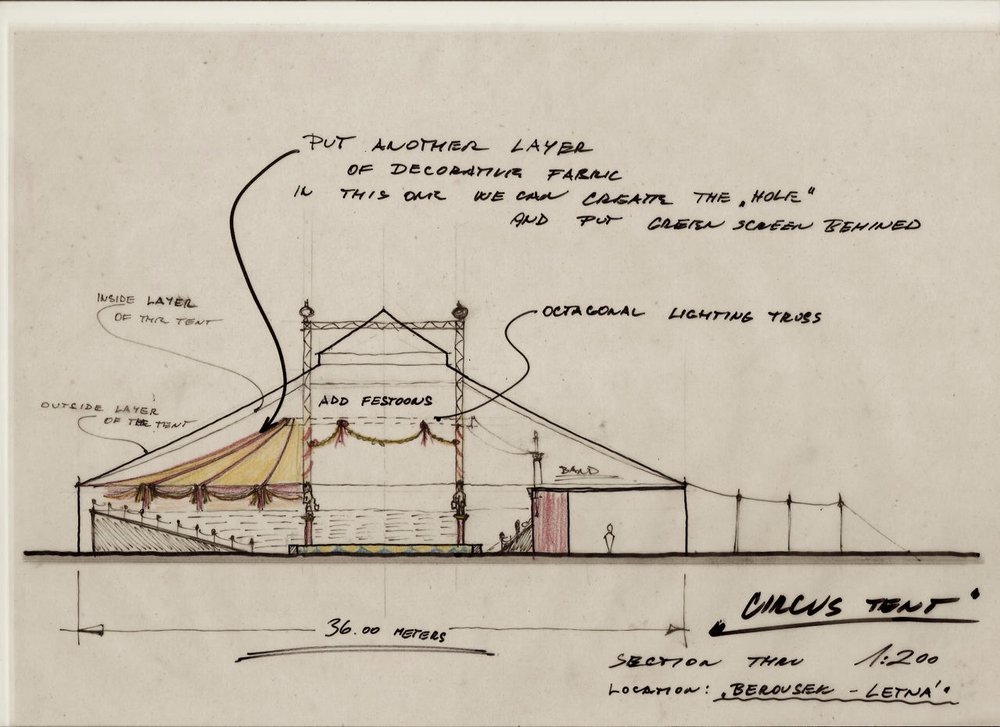 PUT ANOTHER LAYER
OF DECORATIVE FABRIC
IN THIS ONE WE CAN CREATE THE „HOLE"
AND PUT GREEN SCREEN BEHINED
INSIDE LAYER
OF THE TENT
OCTAGONAL LIGHTING TRUSS
OUTSIDE LAYER
OF THE TENT
ADD FESTOONS
BAND
36.00 METERS
„CIRCUS TENT"
SECTION THRU 1:200
LOCATION: „BEROUSEK - LETNÁ"